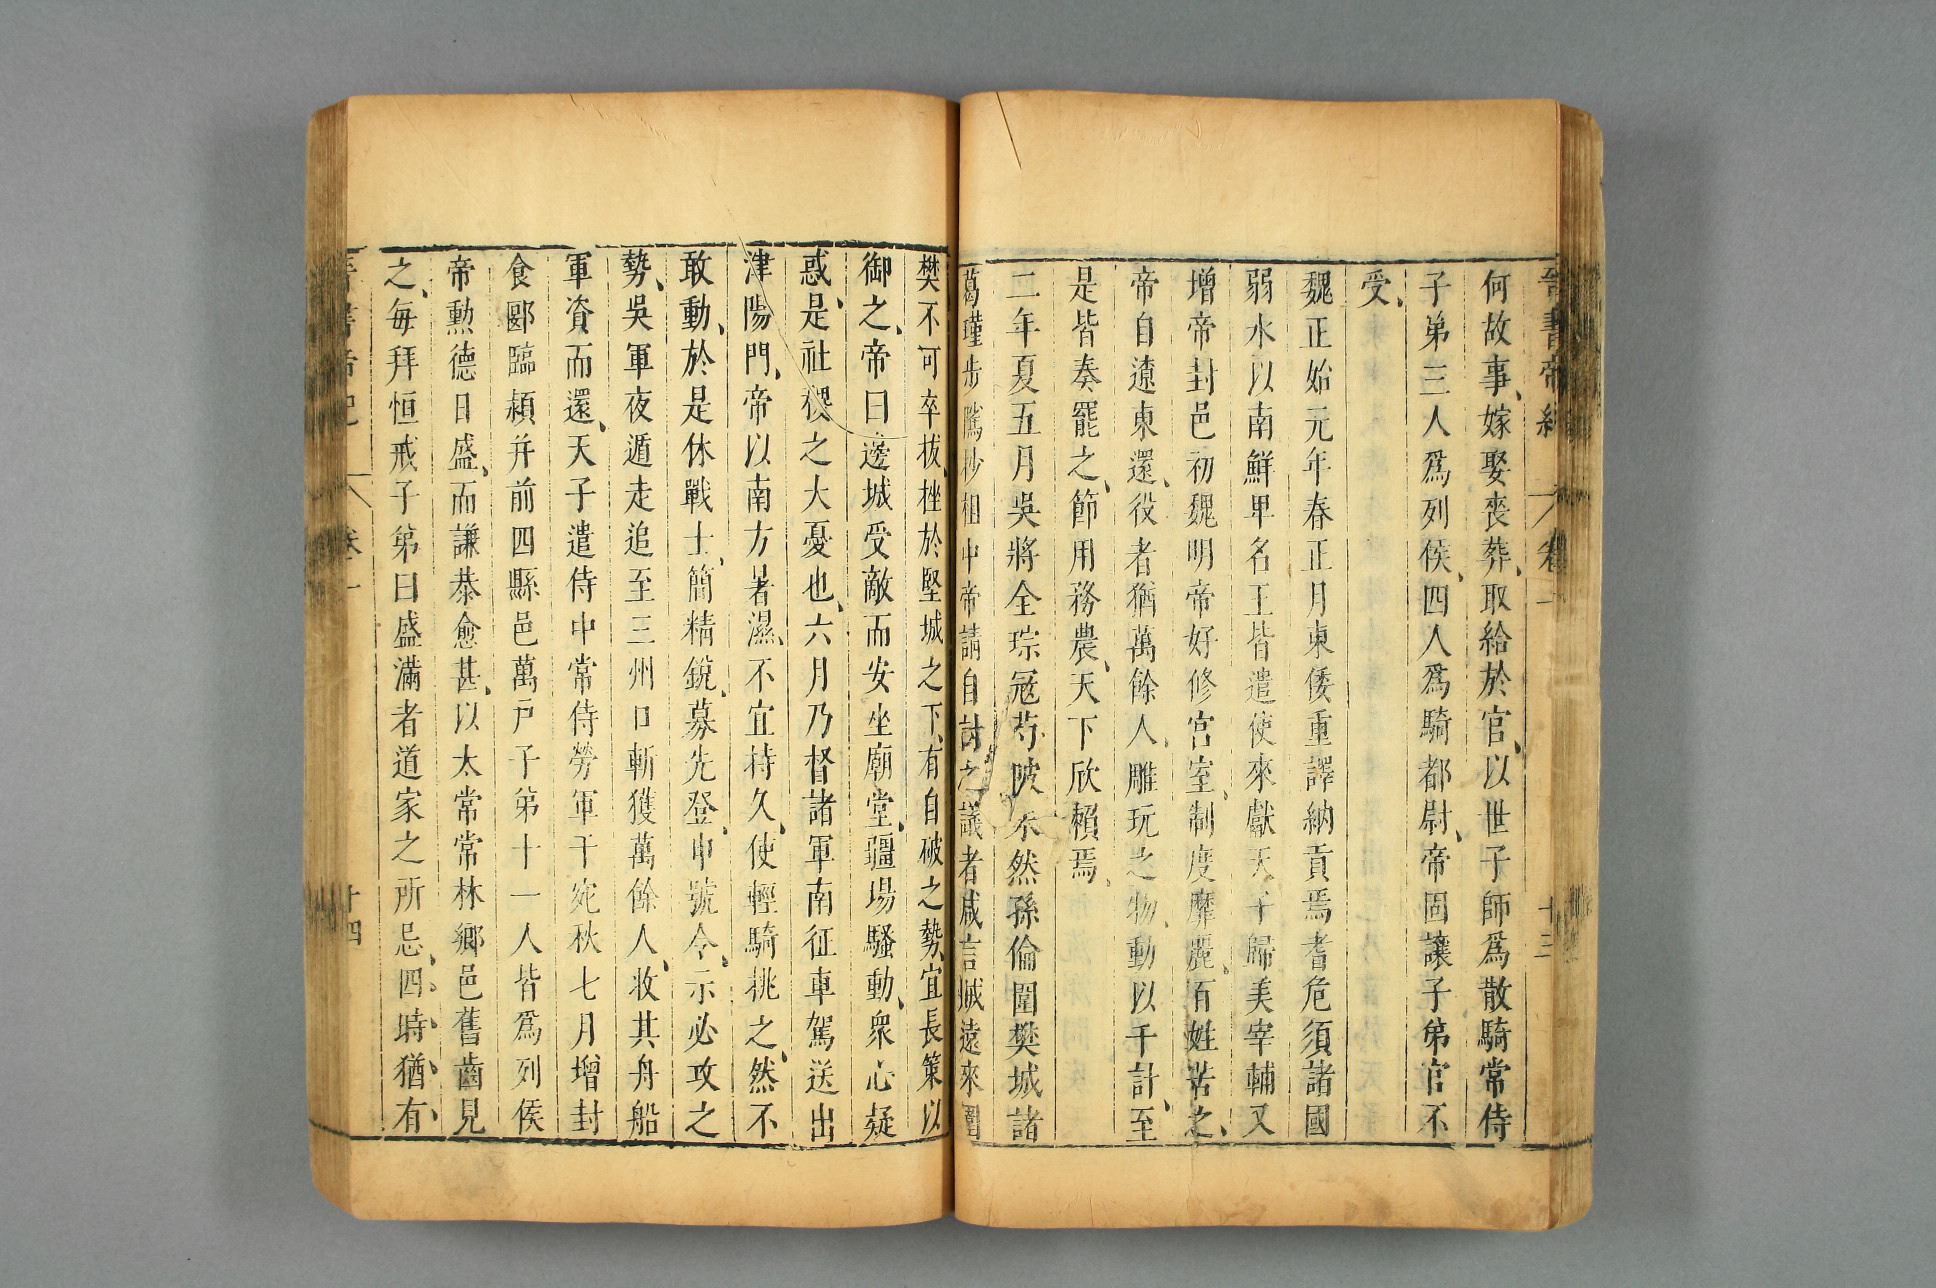 晉書帝紀 卷一 十三
何故事、嫁娶喪葬、取給於官、以世子師爲散騎常侍
子弟三人爲列侯、四人爲騎都尉、帝固讓子弟官不
受、
魏正始元年春正月東倭重譯納貢焉耆危須諸國
弱水以南鮮卑名王皆遣使來獻天子歸美宰輔又
增帝封邑初魏明帝好修宮室、制度靡麗、百姓苦之、
帝自遼東還、役者猶萬餘人、雕玩之物、動以千計、至
是皆奏罷之、節用務農、天下欣賴焉、
二年夏五月吳將全琮寇芍陂朱然孫倫圍樊城諸
葛瑾步騭抄柤中帝請自討之議者咸言賊遠來圍
樊不可卒拔、挫於堅城之下、有自破之勢、宜長策以
御之、帝曰邊城受敵而安坐廟堂、疆場騷動、衆心疑
惑、是社稷之大憂也、六月乃督諸軍南征車駕送出
津陽門、帝以南方暑濕、不宜持久、使輕騎挑之、然不
敢動、於是休戰士、簡精銳、募先登、申號令、示必攻之
勢、吳軍夜遁走追至三州口斬獲萬餘人、收其舟船
軍資而還、天子遣侍中常侍勞軍于宛秋七月增封
食郾臨潁并前四縣邑萬戶子弟十一人皆爲列侯
帝勲德日盛、而謙恭愈甚、以太常常林鄉邑舊齒見
之、每拜恒戒子弟曰盛滿者道家之所忌、四時猶有
晉書帝紀 卷一 十四